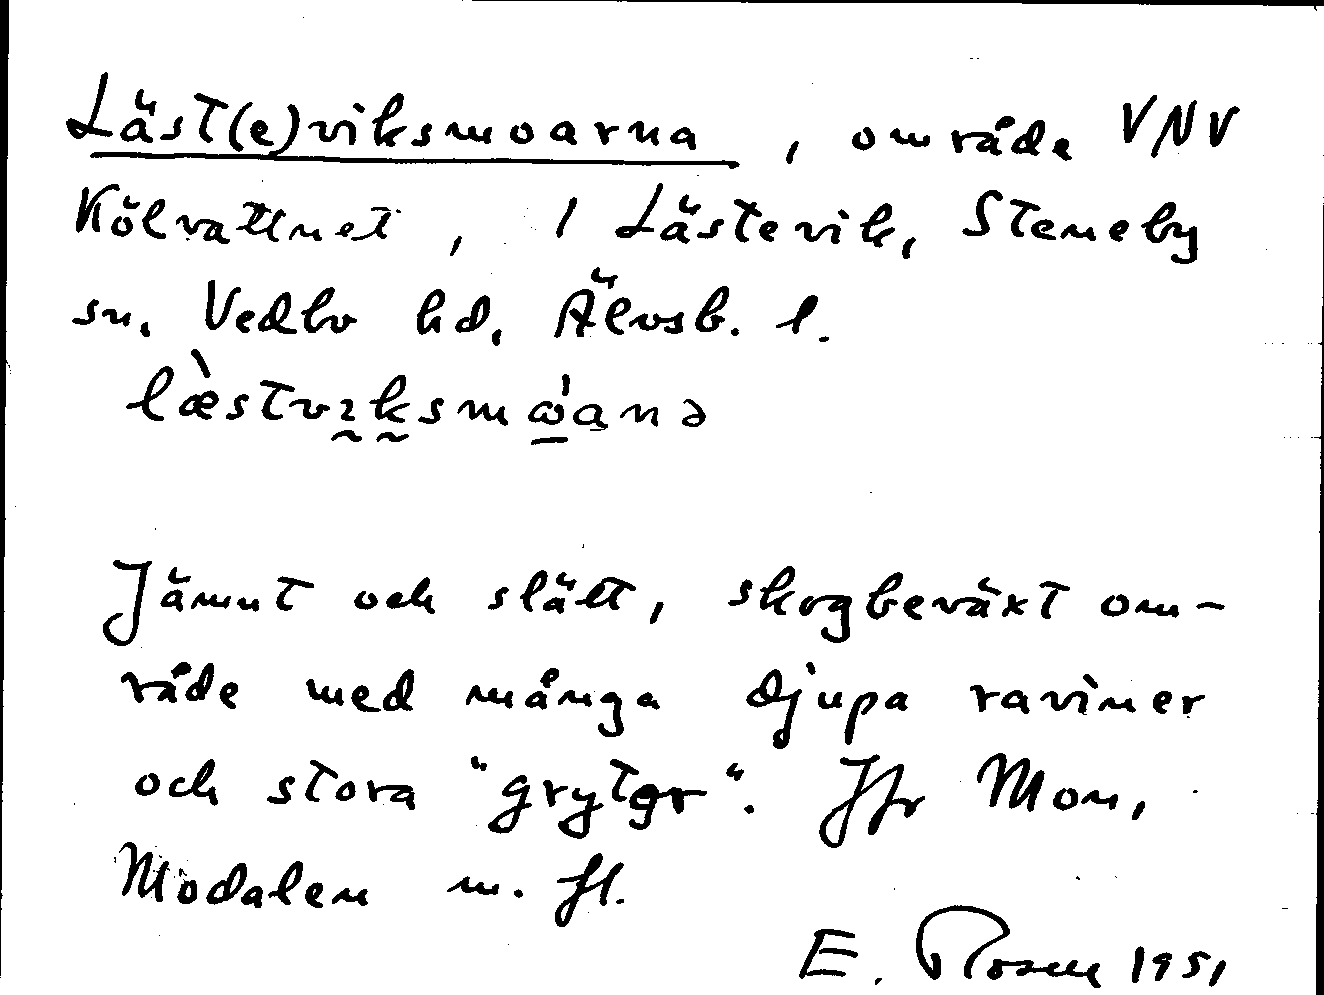 Läst(e)viksmoarna, område VNV
Kölvattnet, 1 Lästevik, Steneby
sn. Vedbo hd, Älvsb. l.
Jämnt och slätt, skogbeväxt om-
råde med många djupa raviner
och stora "grytor". Jfr Mon,
Modalen m. fl.
E. Rosell 1951